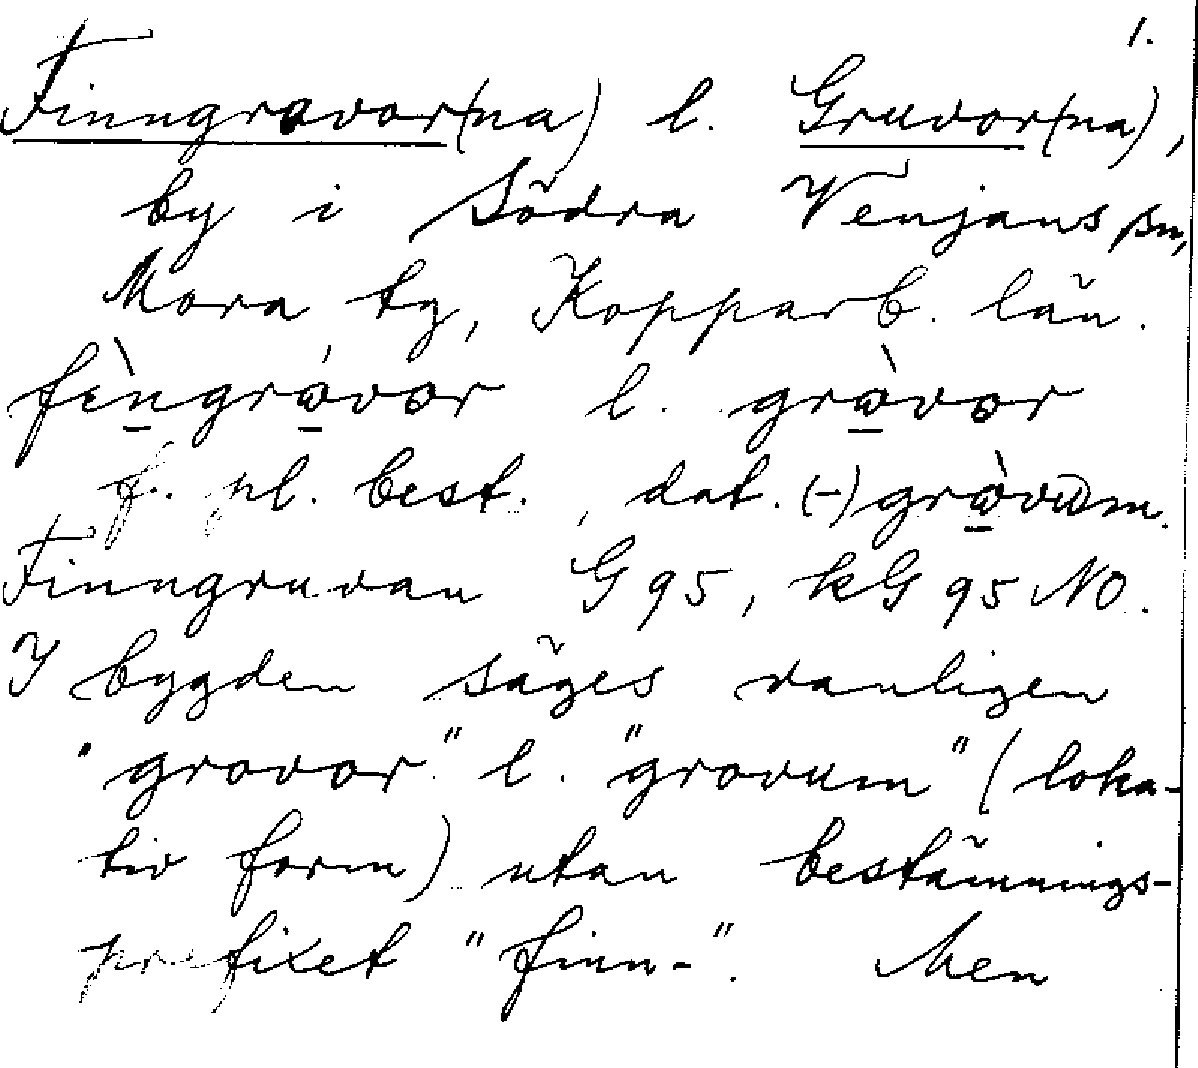 1.
Finngrovor(na) l. Gruvor(na),
by i Södra Venjans sn,
Mora tg, Kopparb. län.
fèngrávor l. gràvor
f. pl. best., dat. (-)gràvωm.
Finngruvan G 95, kG 95 NO.
I bygden säges vanligen
"grovor" l. "grovum" (loka-
tiv form) utan bestämnings-
prefixet "finn-". Men